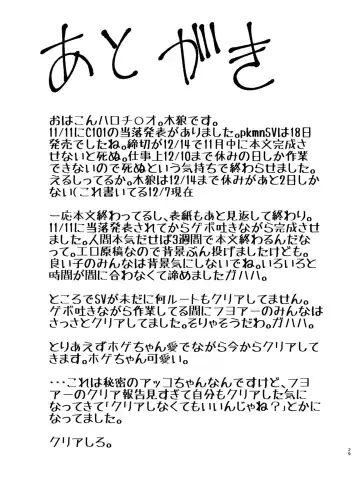 あとがき
おはこんハロチ○オ。木狼です。
11/11にC101の当落発表がありました。pkmnSVは18日
発売でしたね。締切が12/14で11月中に本文完成さ
せないと死ぬ。仕事上12/10まで休みの日しか作業
できないので死ぬという気持ちで終わらせました。
えるしってるか。木狼は12/14まで休みがあと2日しか
ない(これ書いてる12/7現在
一応本文終わってるし、表紙もあと見返して終わり。
11/11に当落発表されてからゲボ吐きながら完成させ
ました。人間本気だせば3週間で本文終わるんだな
って。エロ原稿なので背景ぶん投げましたけども。
良い子のみんなは背景気にしないでね。いろいろと
時間が間に合わなくて諦めましたガハハ。
ところでSVが未だに何ルートもクリアしてません。
ゲボ吐きながら作業してる間にフヨアーのみんなは
さっさとクリアしてました。そりゃそうだわ。ガハハ。
とりあえずホゲちゃん愛でながら今からクリアして
きます。ホゲちゃん可愛い。
・・・これは秘密のアッコちゃんなんですけど、フヨ
アーのクリア報告見すぎて自分もクリアした気に
なってきて「クリアしなくてもいいんじゃね?」とかに
なってました。
クリアしろ。